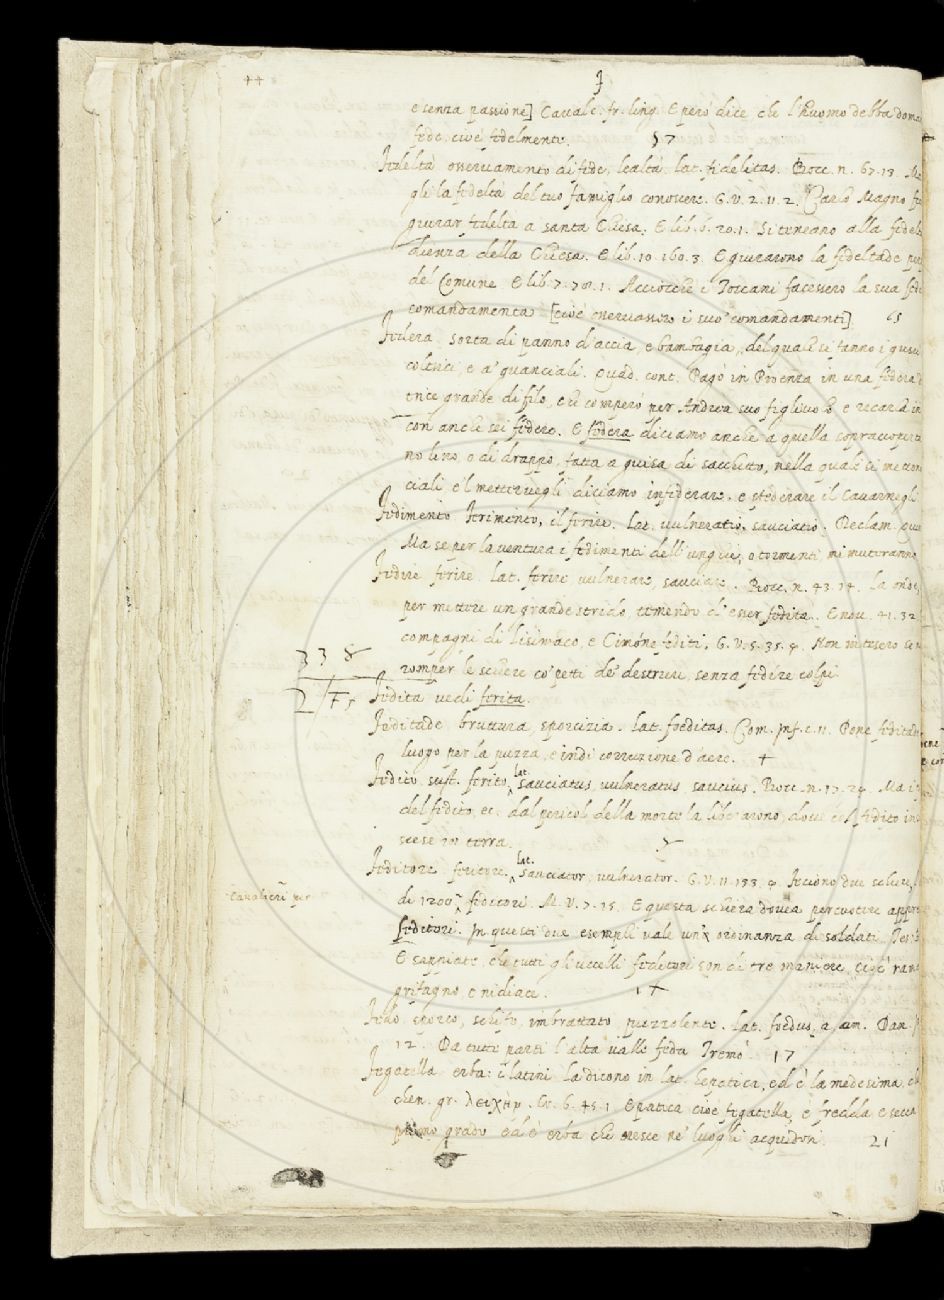 ++
F
e senza passione] Cavalc. fr. ling. E però dice che l'Huomo debba doma
fede. cioè fedelmente. 57
Fedeltà osservamento di fede, lealtà. lat. fidelitas. Bocc. n. 67. 13.
gli la fedeltà del tuo famiglio conoscere. G. V. 2. 11. 2. Carlo Magno fe
giurar fedeltà a santa Chiesa. E lib. 6. 20. 1. Si teneano alla fidel
dienza della Chiesa. E lib. 10. 160. 3. E giurarono la fideltade
del Comune E lib. 7. 78. 1. Acciocchè i Toscani facessero la sua fede
comandamenta [cioè osservassero i suo' comandamenti] 65
Federa. sorta di panno d'accia, e bambagia, del quale si fanno i gusci
coltrici, e a' guanciali. Quad. cont. Pagò in Proenza in una federa
trice grande di filo, che comperò per Andrea suo figliuolo e recarla in
con anche sei federe. E federa diciamo anche a quella sopraccoperta
no lino, o di drappo, fatta a guisa di sacchetto, nella quale si mettono
ciali e'l mettervegli diciamo infederare. e sfederare il cavarnegli
Fedimento Ferimento, il ferire. Lat. vulneratio, sauciatio. Declam.
Ma se per la ventura i fedimenti dell'unghie, o tormenti, mi muteranno
Fedire ferire. lat. ferire vulnerare, sauciare. Bocc. n. 43. 14. la onde,
per mettere un grande strido, temendo d'esser fedita. E nov. 41. 32.
compagni di Lisimaco, e Cimone fediti. G. V. 5. 35. 4. Non intesero se n
romper le schiere co' petti de' destrieri, senza fedire colpi.
3 3 8
Fedita vedi ferita.
Feditade bruttura sporcizia. lat. foeditas. Com. Inf. c. 11. Pone feditade
luogo per la puzza, e indi corruzione d'aere. +
Fedito sust. ferito, lat. sauciatus vulneratus saucius. Bocc. n. 17. 24. Ma i
del fedito, ec. dal pericol della morte la liberarono, dove col fedito in
scese in terra.
Feditore feritore. lat. sauciator, vulnerator. G. V. 11. 133. 4. Feciono due schiere,
Cavalieri per
di 1200 feditori. M. V. 7. 15. E questa schiera dovea percuotere appre
feditori. In questi due esempli vale un' ordinanza di soldati. Tes.
E sappiate, che tutti gli uccelli feditori son di tre maniere, cioè ram
grifagno, e nidiace. 1 +
Fedo sporco, schifo, imbrattato, puzzolente. Lat. foedus, a, um. Dan.
12. Da tutte parti l'alta valle feda Tremò. 17
Fegatella erba: i latini la dicono in lat. hepatica, ed è la medesima, ch
chen. gr. λειχήν. Cr. 6. 45. 1 Epatica cioè fegatella, è fredda e secca
primo grado ed è erba che cresce ne' luoghi acquidosi. 21